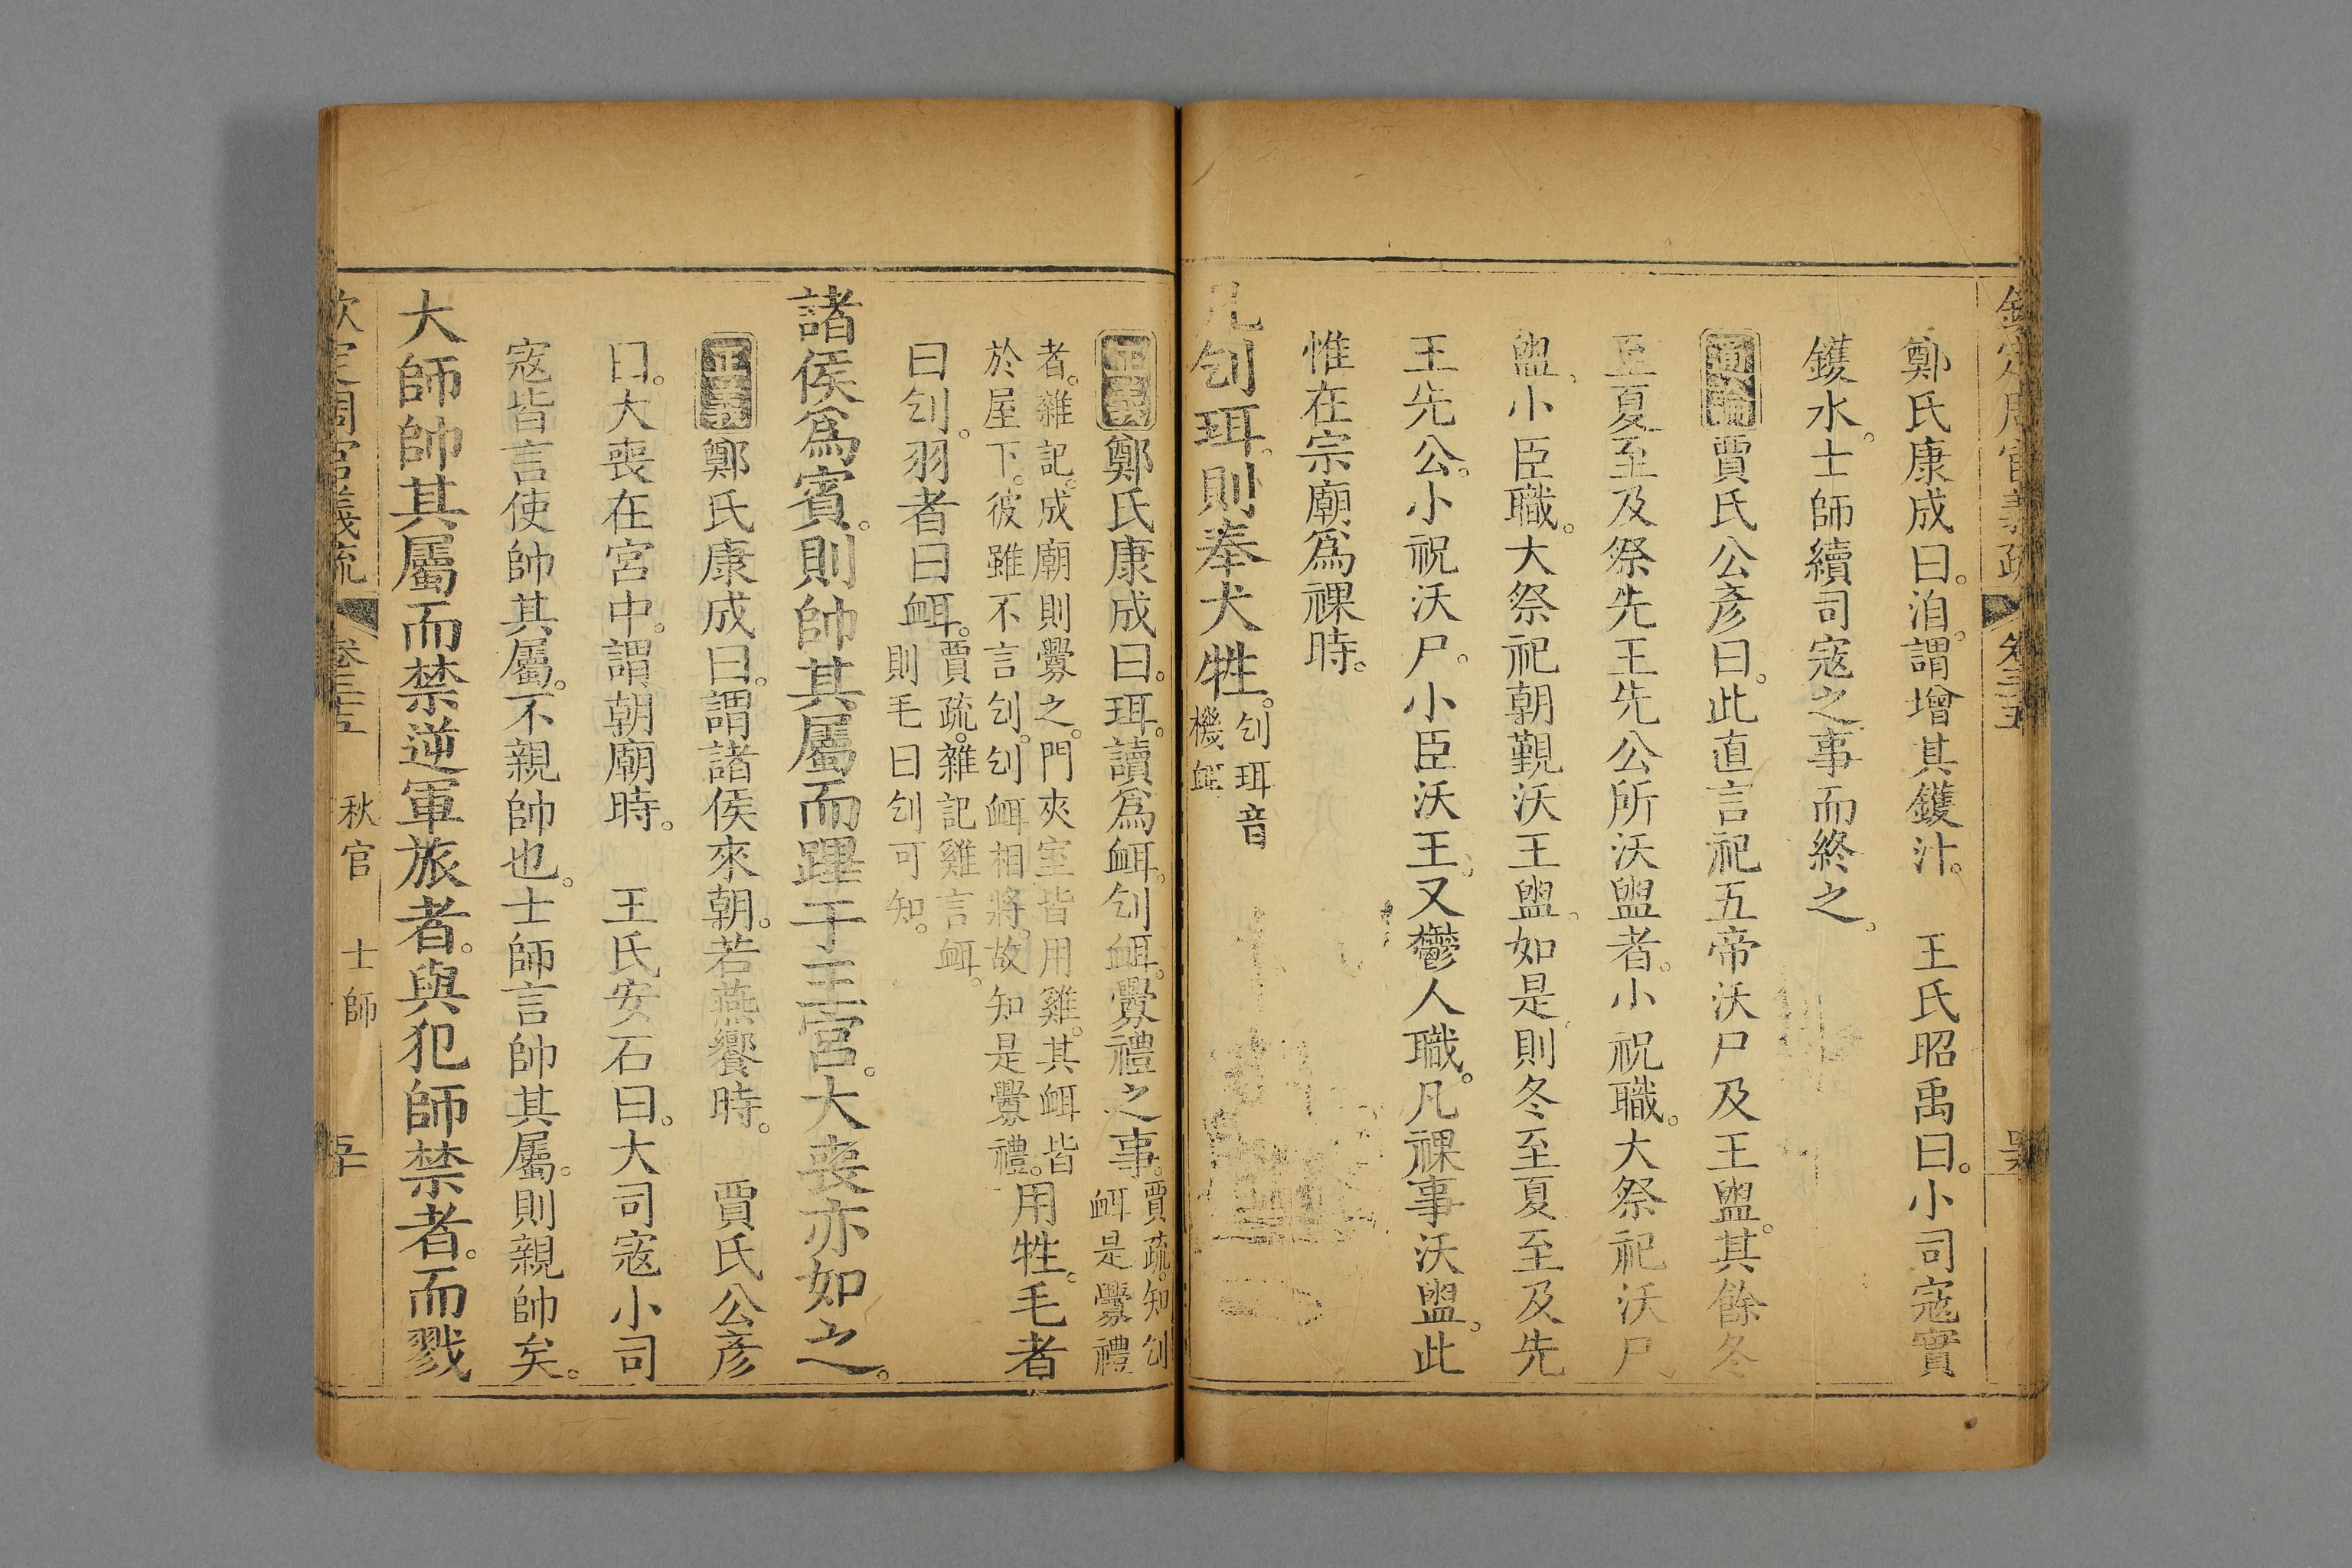 鄭氏康成曰。洎。謂增其鑊汁。 王氏昭禹曰。小司寇實
鑊水。士師續司寇之事而終之。
通論 賈氏公彥曰。此直言祀五帝沃尸及王盥。其餘冬
至夏至及祭先王先公所沃盥者。小祝職。大祭祀沃尸
盥。小臣職。大祭祀朝覲沃王盥。如是。則冬至夏至及先
王先公。小祝沃尸。小臣沃王。又鬱人職。凡祼事沃盥。此
惟在宗廟爲祼時。
凡刉珥。則奉犬牲。刉珥音
機衈
正義 鄭氏康成曰。珥。讀爲衈。刉衈。釁禮之事。賈疏。知刉
衈是釁禮
者。雜記。成廟則釁之。門夾室皆用雞。其衈皆
於屋下。彼雖不言刉。刉衈相將。故知是釁禮。用牲。毛者
曰刉。羽者曰衈。賈疏。雜記雞言衈。
則毛曰刉可知。
諸侯爲賓。則帥其屬而蹕于王宮。大喪亦如之。
正義 鄭氏康成曰。謂諸侯來朝。若燕饗時。 賈氏公彥
曰。大喪在宮中。謂朝廟時。 王氏安石曰。大司寇小司
寇皆言使帥其屬。不親帥也。士師言帥其屬。則親帥矣。
大師帥其屬而禁逆軍旅者。與犯師禁者。而戮
欽定周官義疏 卷三十五 秋官 士師